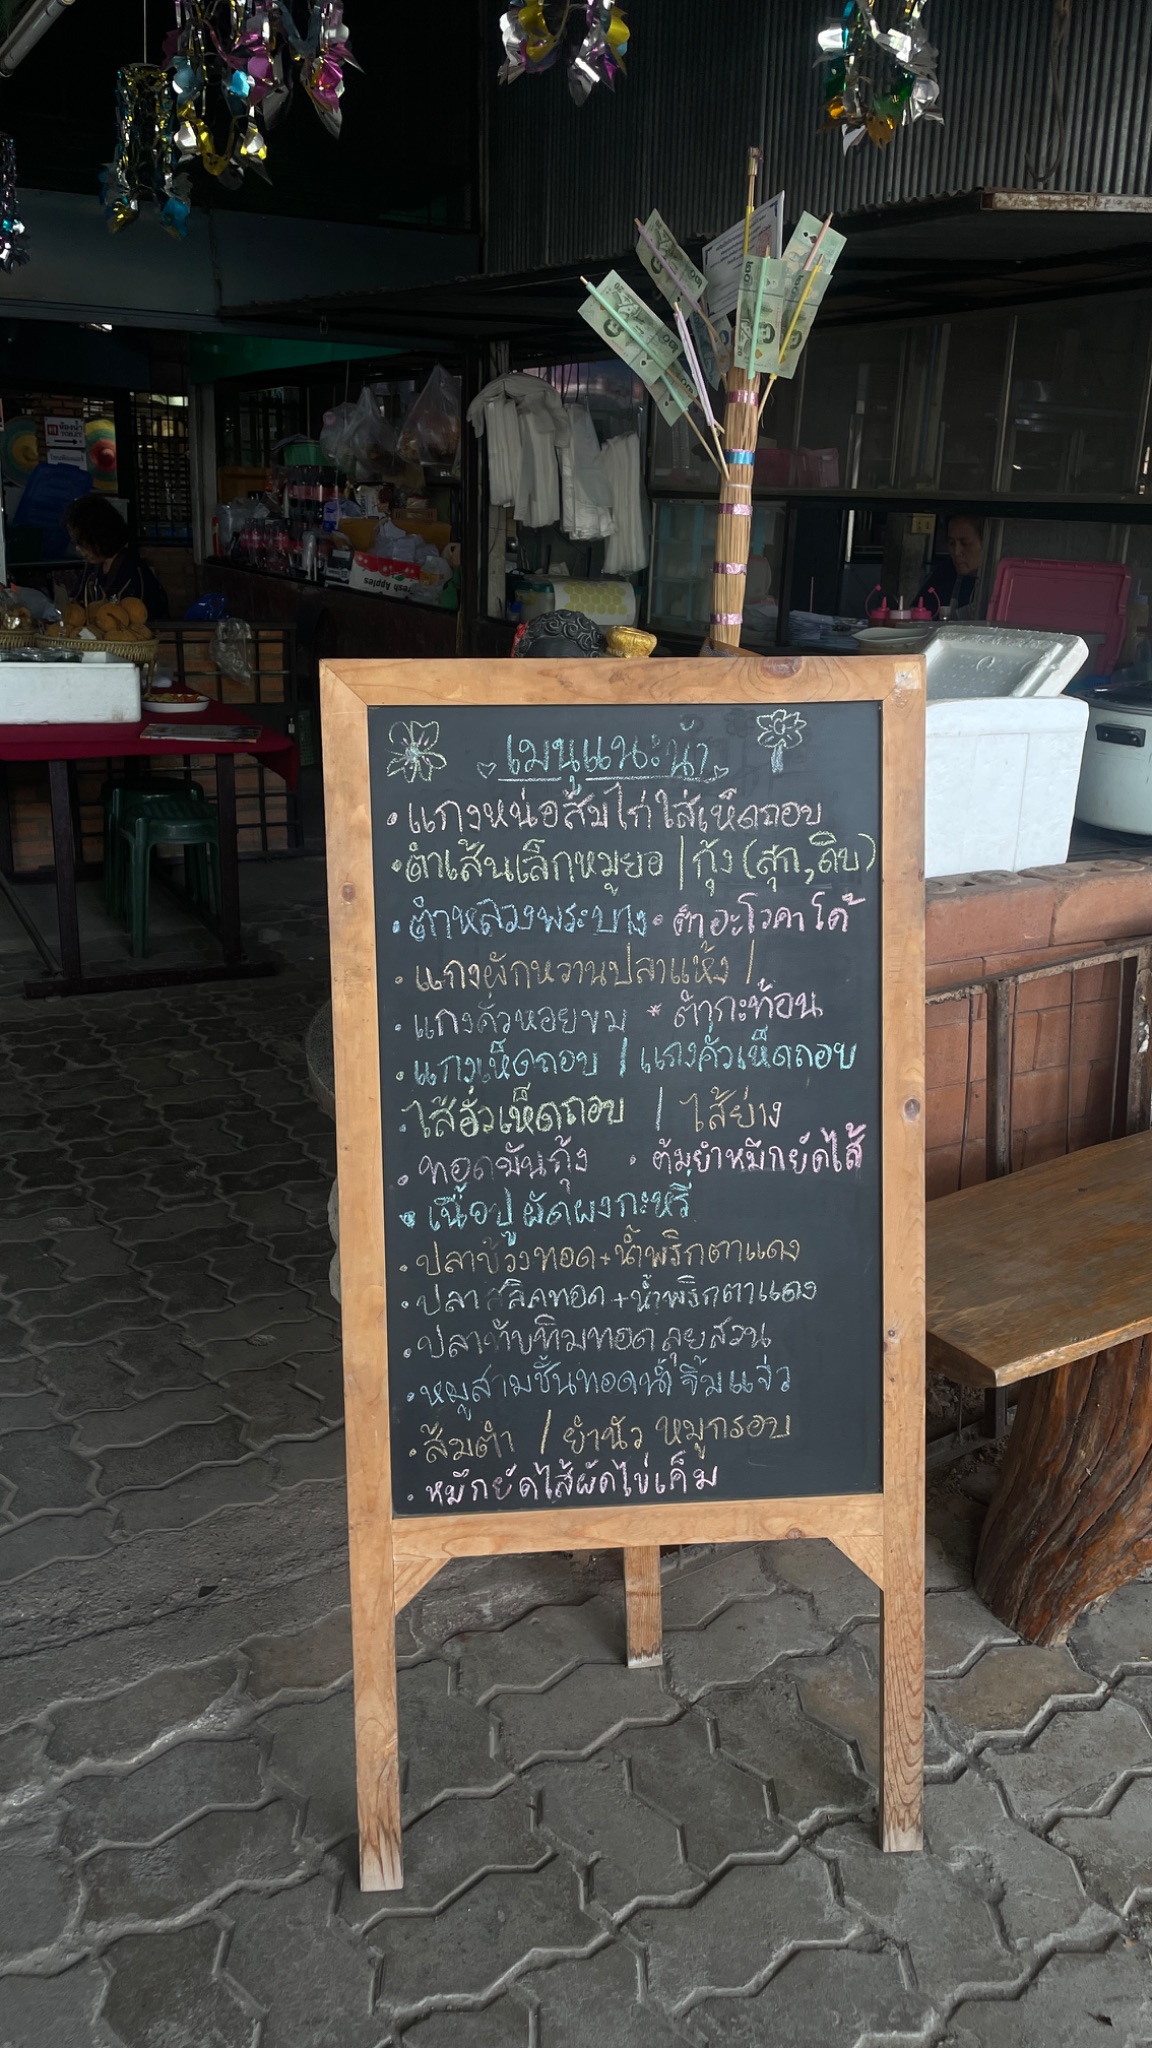 ห้องน้ำ
TOILET
เมนูแนะนำ
• แกงหน่อส้มไก่ใส่เห็ดถอบ
• ตำเส้นเล็กหมูยอ / กุ้ง (สุก,ดิบ)
• ตำหลวงพระบาง • ตำอะโวคาโด้
• แกงผักหวานปลาแห้ง /
• แกงคั่วหอยขม * ตำกะท้อน
• แกงเห็ดถอบ / แกงคั่วเห็ดถอบ
• ไส้อั่วเห็ดถอบ / ไส้ย่าง
• ทอดมันกุ้ง • ต้มยำหมึกยัดไส้
• เนื้อปูผัดผงกะหรี่
• ปลาช่วงทอด+น้ำพริกตาแดง
• ปลาสลิดทอด+น้ำพริกตาแดง
• ปลาทับทิมทอด ลุยสวน
• หมูสามชั้นทอดน้ำจิ้มแจ่ว
• ส้มตำ / ยำนัว หมูกรอบ
• หมึกยัดไส้ผัดไข่เค็ม